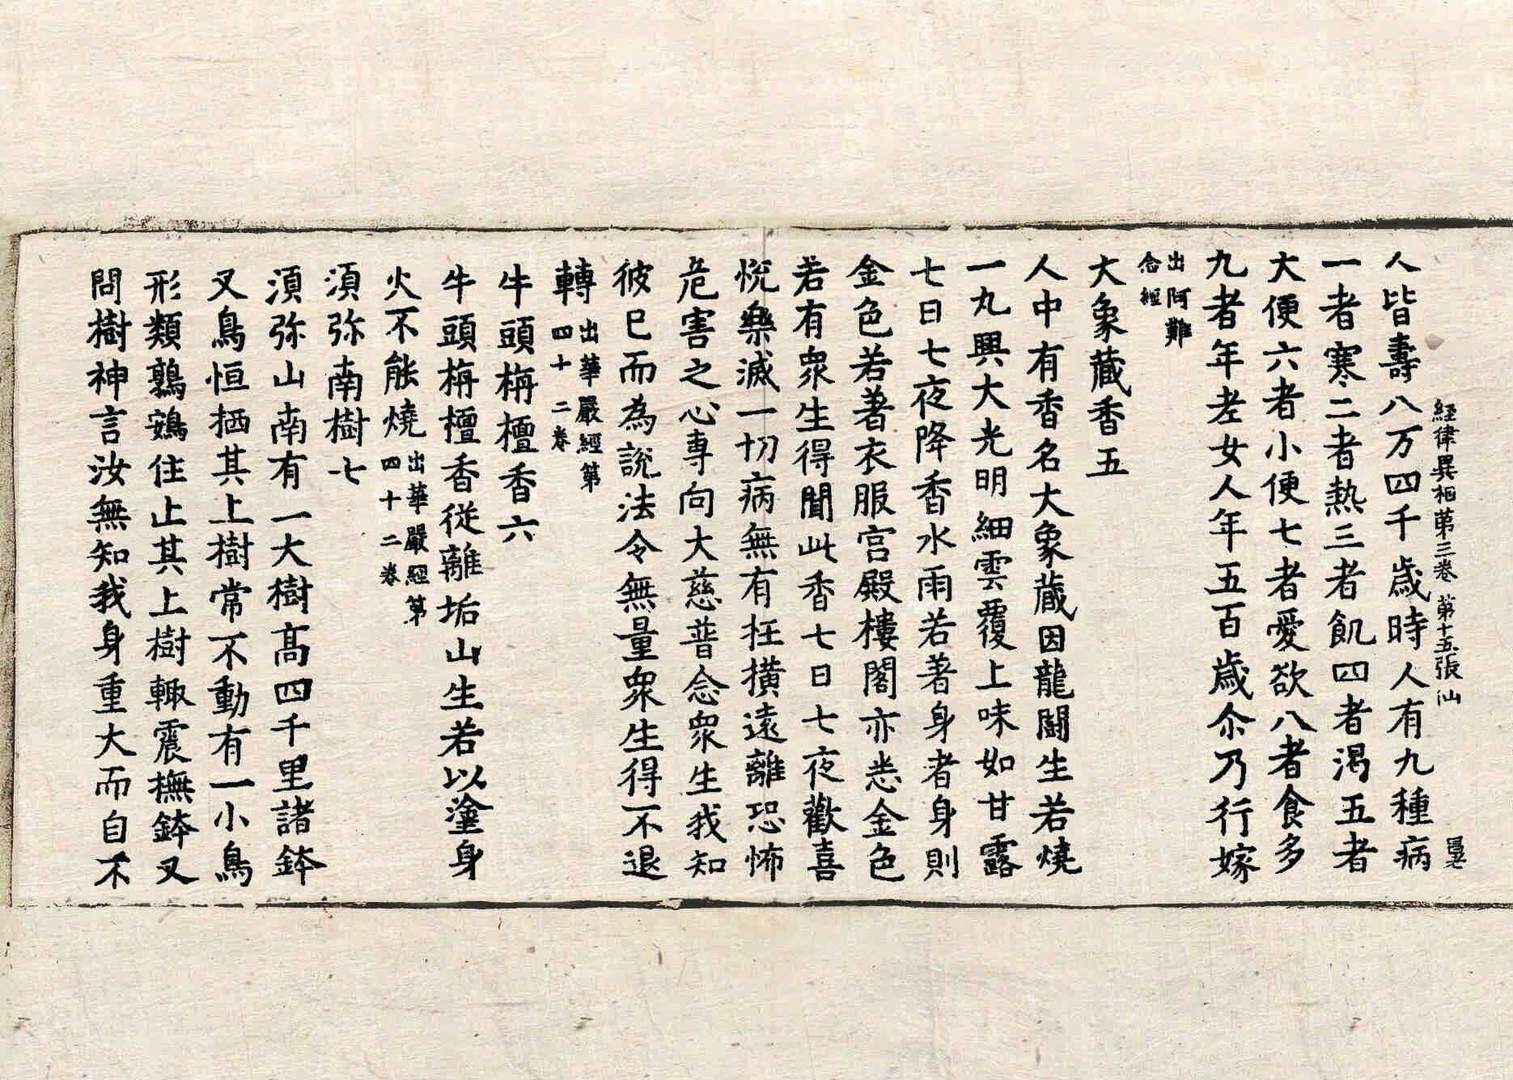 経律異相苐三卷 苐十五張
人皆壽八万四千歳時人有九種病
一者寒二者熱三者飢四者渴五者
大便六者小便七者愛欲八者食多
九者年老女人年五百歳尒乃行嫁
出阿難
念経
大象藏香五
人中有香名大象藏因龍鬪生若燒
一丸興大光明細雲覆上味如甘露
七日七夜降香水雨若著身者身則
金色若著衣服宫殿樓閣亦悉金色
若有衆生得聞此香七日七夜歡喜
悅樂滅一切病無有枉横遠離恐怖
危害之心專向大慈普念衆生我知
彼已而為說法令無量衆生得不退
轉 出華嚴經第
四十二卷
牛頭栴檀香六
牛頭栴檀香從離垢山生若以塗身
火不能燒 出華嚴經第
四十二卷
湏弥南樹七
湏弥山南有一大樹髙四千里諸鉢
叉鳥恒栖其上樹常不動有一小鳥
形類鶉鷃住止其上樹輙震撫鉢叉
問樹神言汝無知我身重大而自不